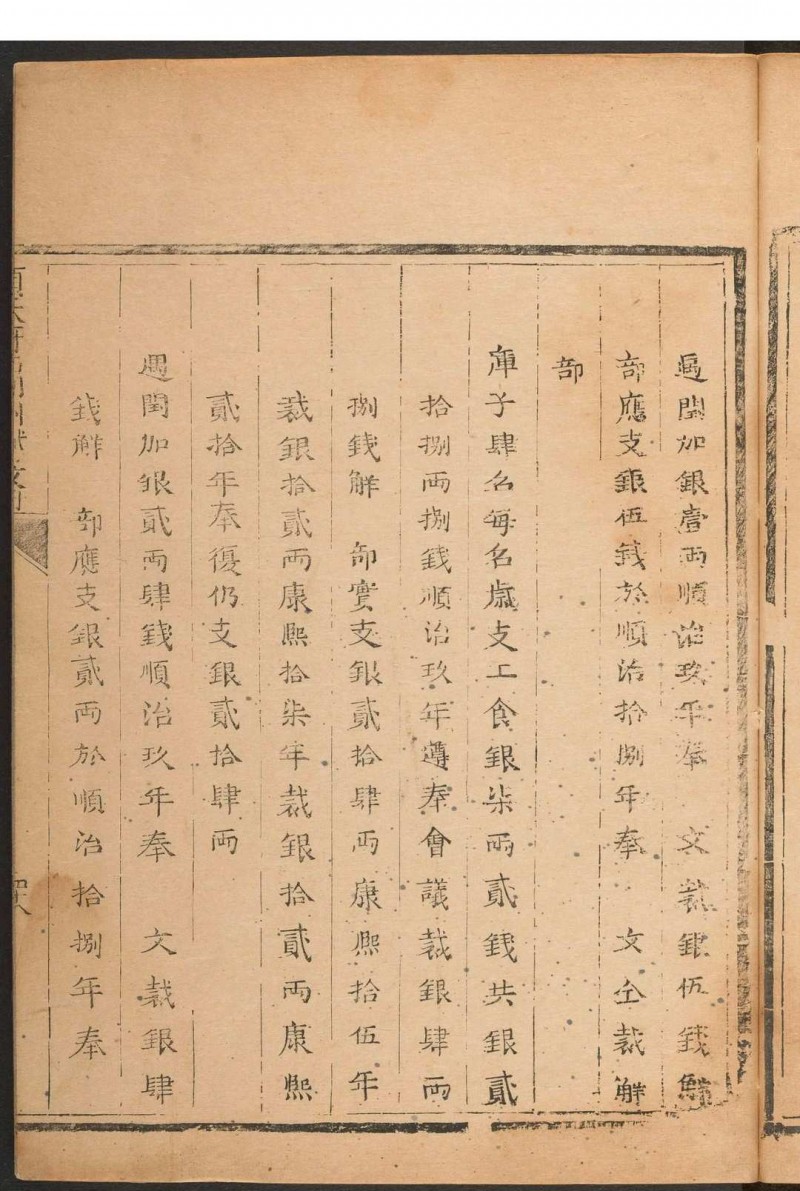 遇閏加銀壹兩順治玖年奉　文裁銀伍錢解
部應支銀伍錢於順治拾捌年奉　文全裁解
部
庫子肆名每名歲支工食銀柒兩貳錢共銀貳
拾捌兩捌錢順治玖年遵奉會議裁銀肆兩
捌錢解　部實支銀貳拾肆兩康熙拾伍年
裁銀拾貳兩康熙拾柒年裁銀拾貳兩康熙
貳拾年奉復仍支銀貳拾肆兩
遇閏加銀貳兩肆錢順治玖年奉　文裁銀肆
錢解　部應支銀貳兩於順治拾捌年奉